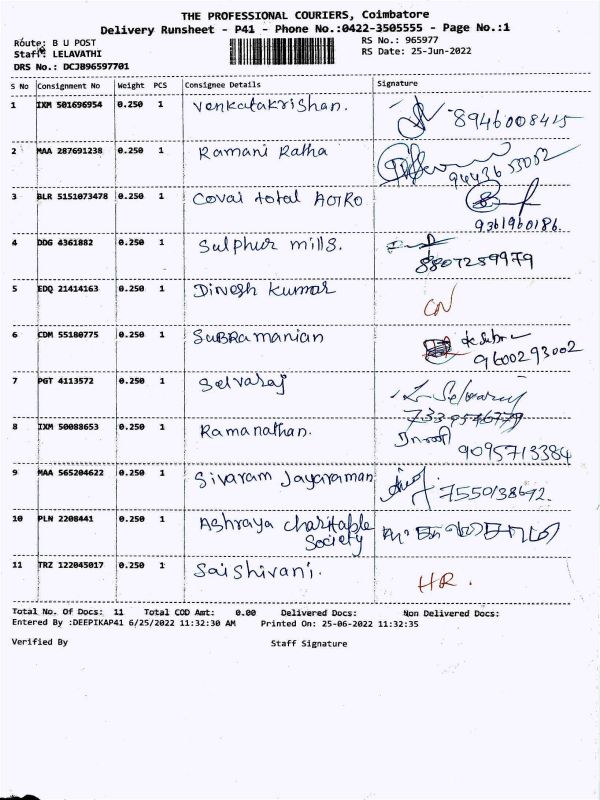 THE PROFESSIONAL COURIERS, Coimbatore
Delivery Runsheet - P41 - Phone No.:0422-3505555 - Page No.:1
Route: B U POST
RS No.: 965977
Staff: LELAVATHI
RS Date: 25-Jun-2022
DRS No.: DCJB96597701
S No Consignment No Weight PCS Consignee Details Signature
1 IXM 501696954 0.250 1 Venkatakrishnan. 8946008415
2 MAA 287691238 0.250 1 Ramani Ratha
3 BLR 5151073478 0.250 1 Covai total AOTRO 9361960186.
4 DDG 4361882 0.250 1 Sulphur mills. 8807259979
5 EDQ 21414163 0.250 1 Dinesh Kumar CN
6 CDM 55180775 0.250 1 SuBRamanian 9600293002
7 PGT 4113572 0.250 1 Selvaraj
8 IXM 50088653 0.250 1 Ramanathan. 9095713384
9 MAA 565204622 0.250 1 Sivaram Jayaraman
10 PLN 2208441 0.250 1 Ashraya charitable
Society
11 TRZ 122045017 0.250 1 Saishivani. HR.
Total No. Of Docs: 11 Total COD Amt: 0.00 Delivered Docs: Non Delivered Docs:
Entered By :DEEPIKAP41 6/25/2022 11:32:30 AM Printed On: 25-06-2022 11:32:35
Verified By Staff Signature